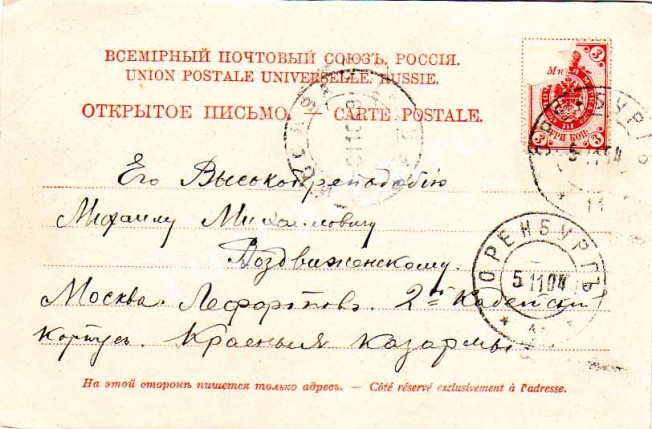 ВСЕМІРНЫЙ ПОЧТОВЫЙ СОЮЗЪ. РОССІЯ.
UNION POSTALE UNIVERSELLE. RUSSIE.
ОТКРЫТОЕ ПИСЬМО. — CARTE POSTALE.
3
3
ТРИ КОП.
ОРЕНБУРГЪ
5 11 04
Его Высокопреподобію
Михаилу Михайловичу
Воздвиженскому.
Москва. Лефортово. 2й Кадетскій
Корпусъ. Красныя Казармы
ОРЕНБУРГЪ
5 11 04
На этой сторонѣ пишется только адресъ. — Côté réservé exclusivement à l'adresse.